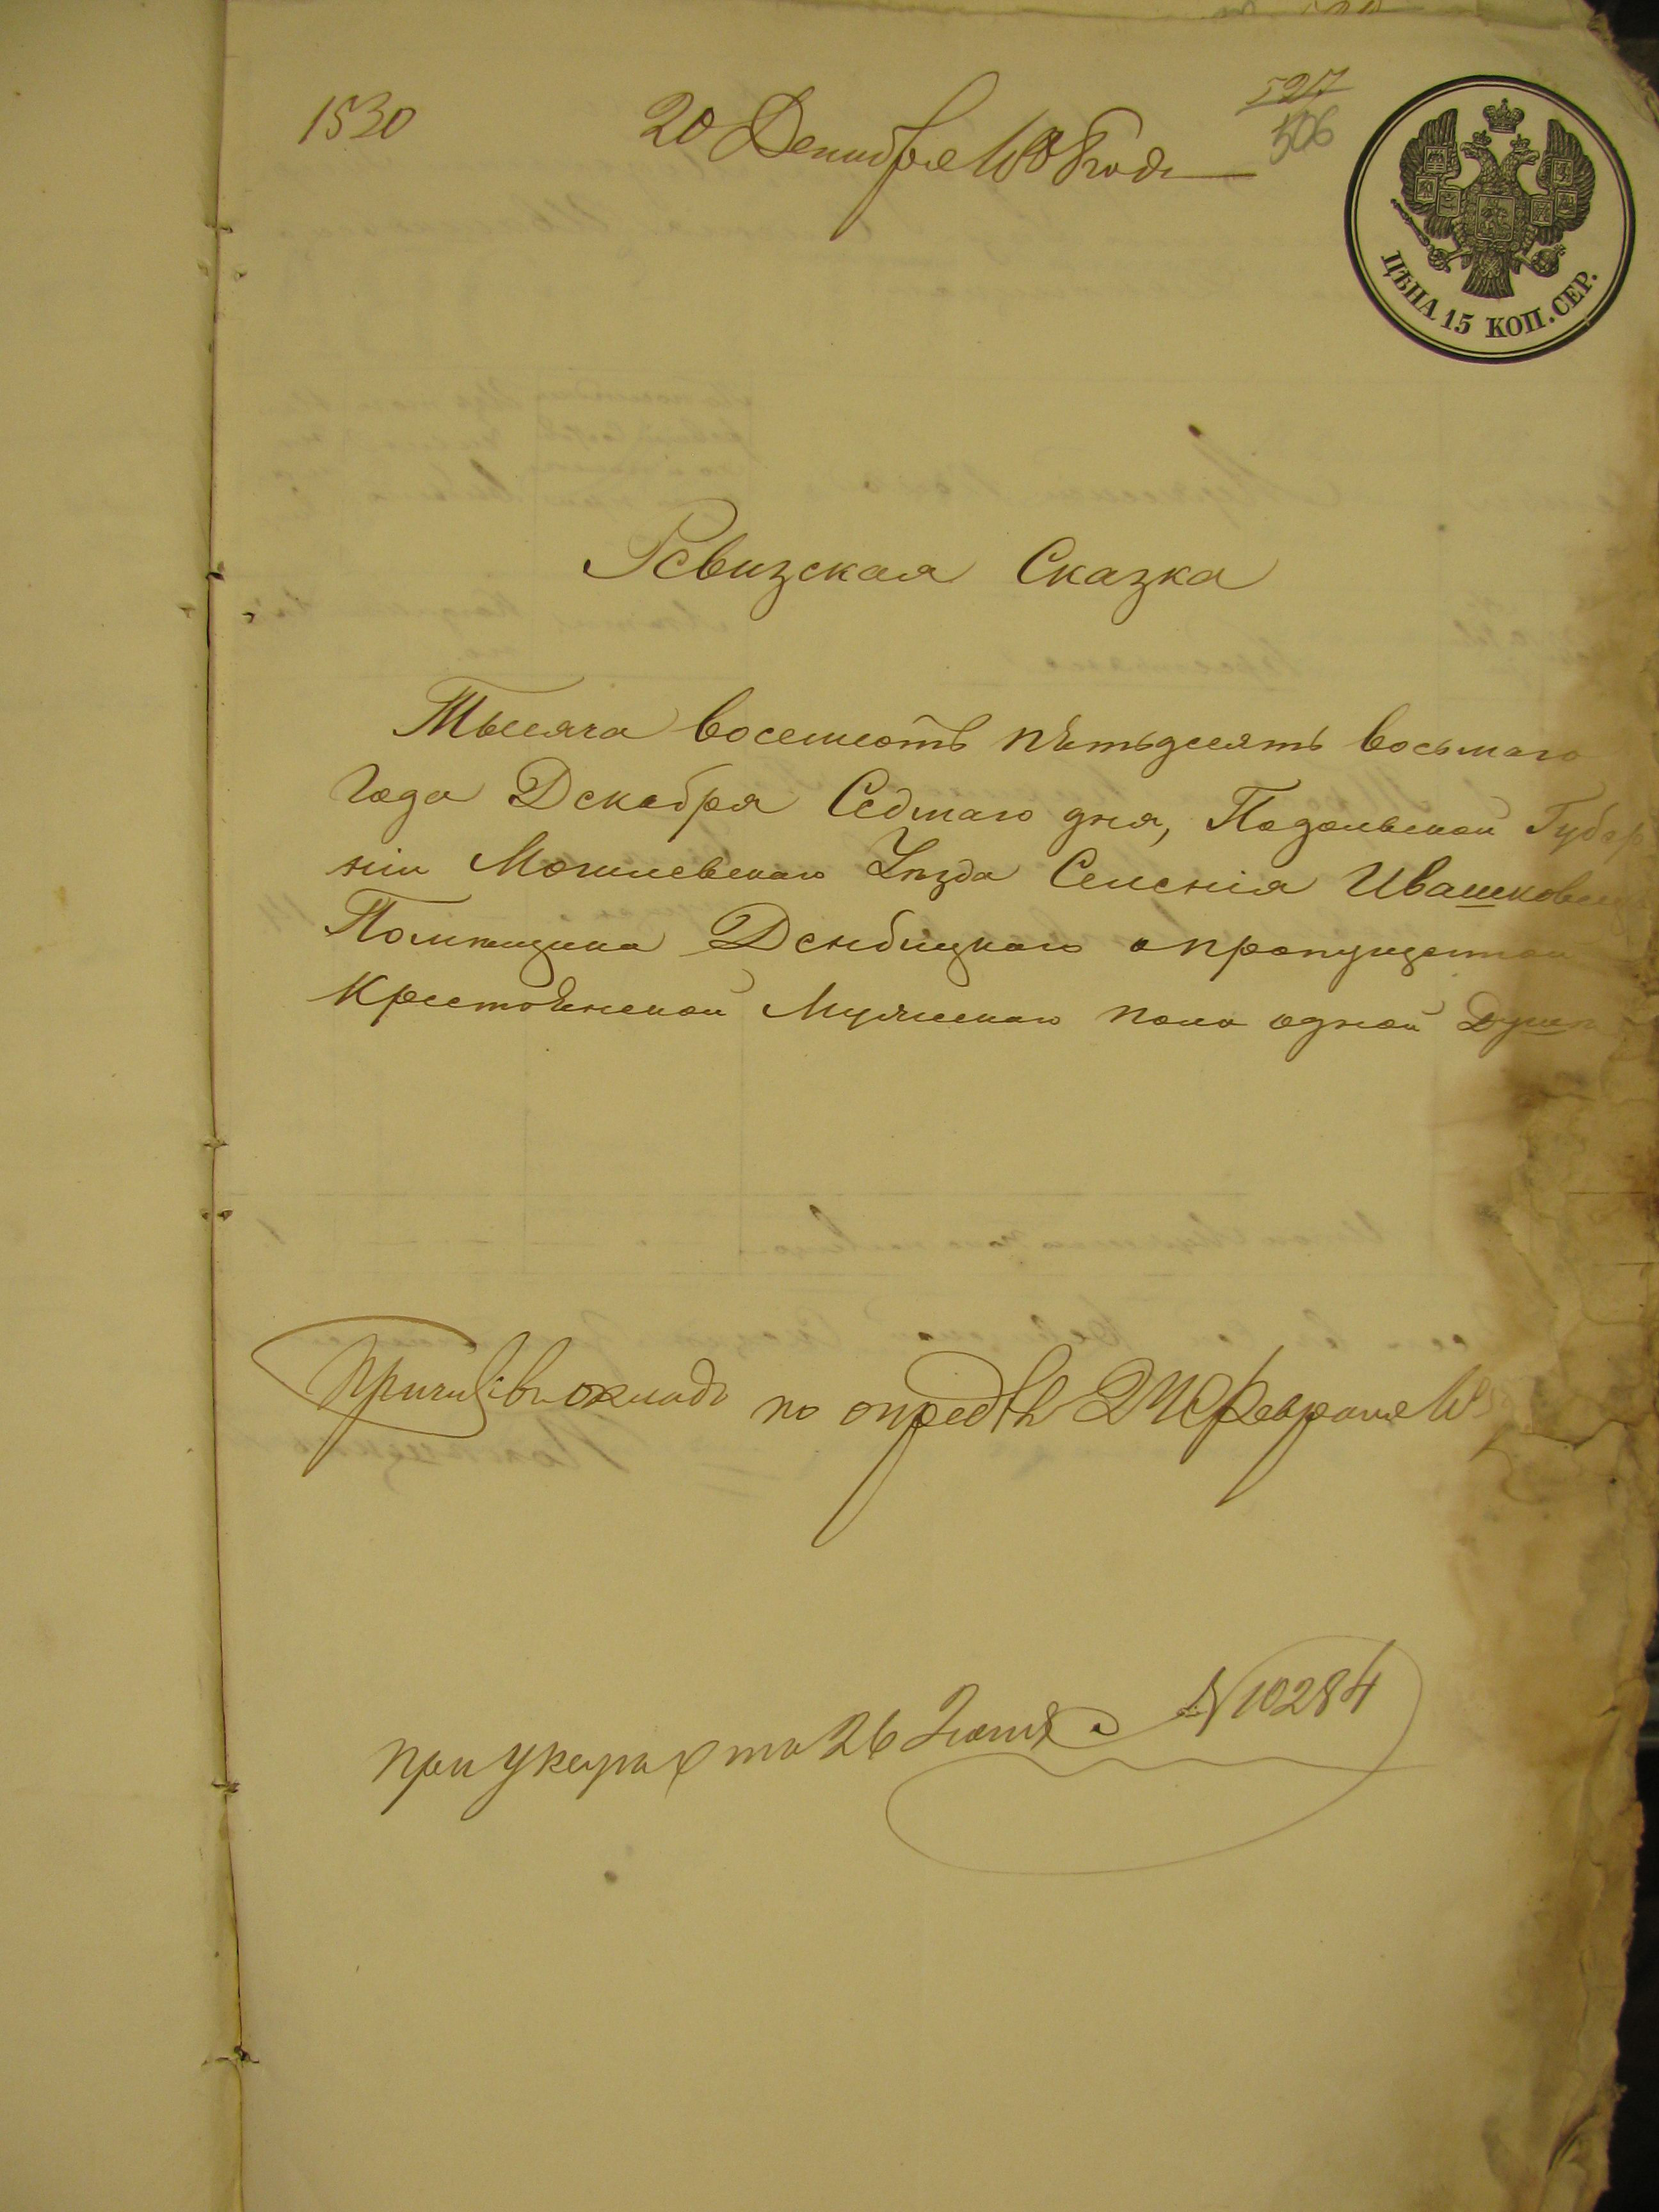 527
1530 20 Декабря 1858 года
506
ЦѢНА 15 КОП. СЕР.
Ревизская Сказка
Тысяча восемьсотъ пѣтьдесятъ восьмаго
Года Декабря Седмаго дня, Подольской Губер
ніи Могилевскаго Уѣзда Селенія Ивашковецъ
Помѣщика Дембицкаго о пропущенной
Крестьянской Мужескаго пола одной Душѣ
въ окладъ по опредѣл 24 Февраля 18
при указѣ 26 Іюня № 10284